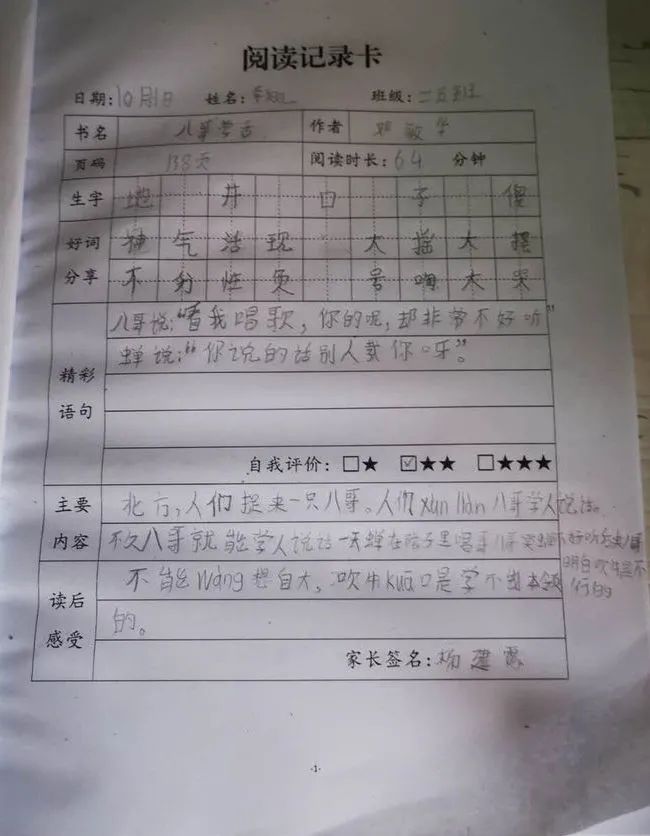 阅读记录卡
日期:10月1日 姓名: 班级:二五班
书名 八哥学舌 作者 敏
页码 138页 阅读时长:64 分钟
生字 地 井 白 子 傻
好词 神气活现 大摇大摆
分享 不 性 号啕大哭
八哥说:“看我唱歌,你的呢,却非常不好听”
蝉说:“你说的话别人卖你呀”。
精彩
语句
自我评价:□★ ☑★★ □★★★
主要 北方,人们捉来一只八哥。人们xùn liàn八哥学人说话。
内容 不久八哥就能学人说话一天蝉在院子里唱哥八哥 不好听后来八哥
明白吹牛是不
行的
不能wàng想自大,吹牛kuā口是学不到本领
读后 的。
感受
家长签名:杨建
·1·